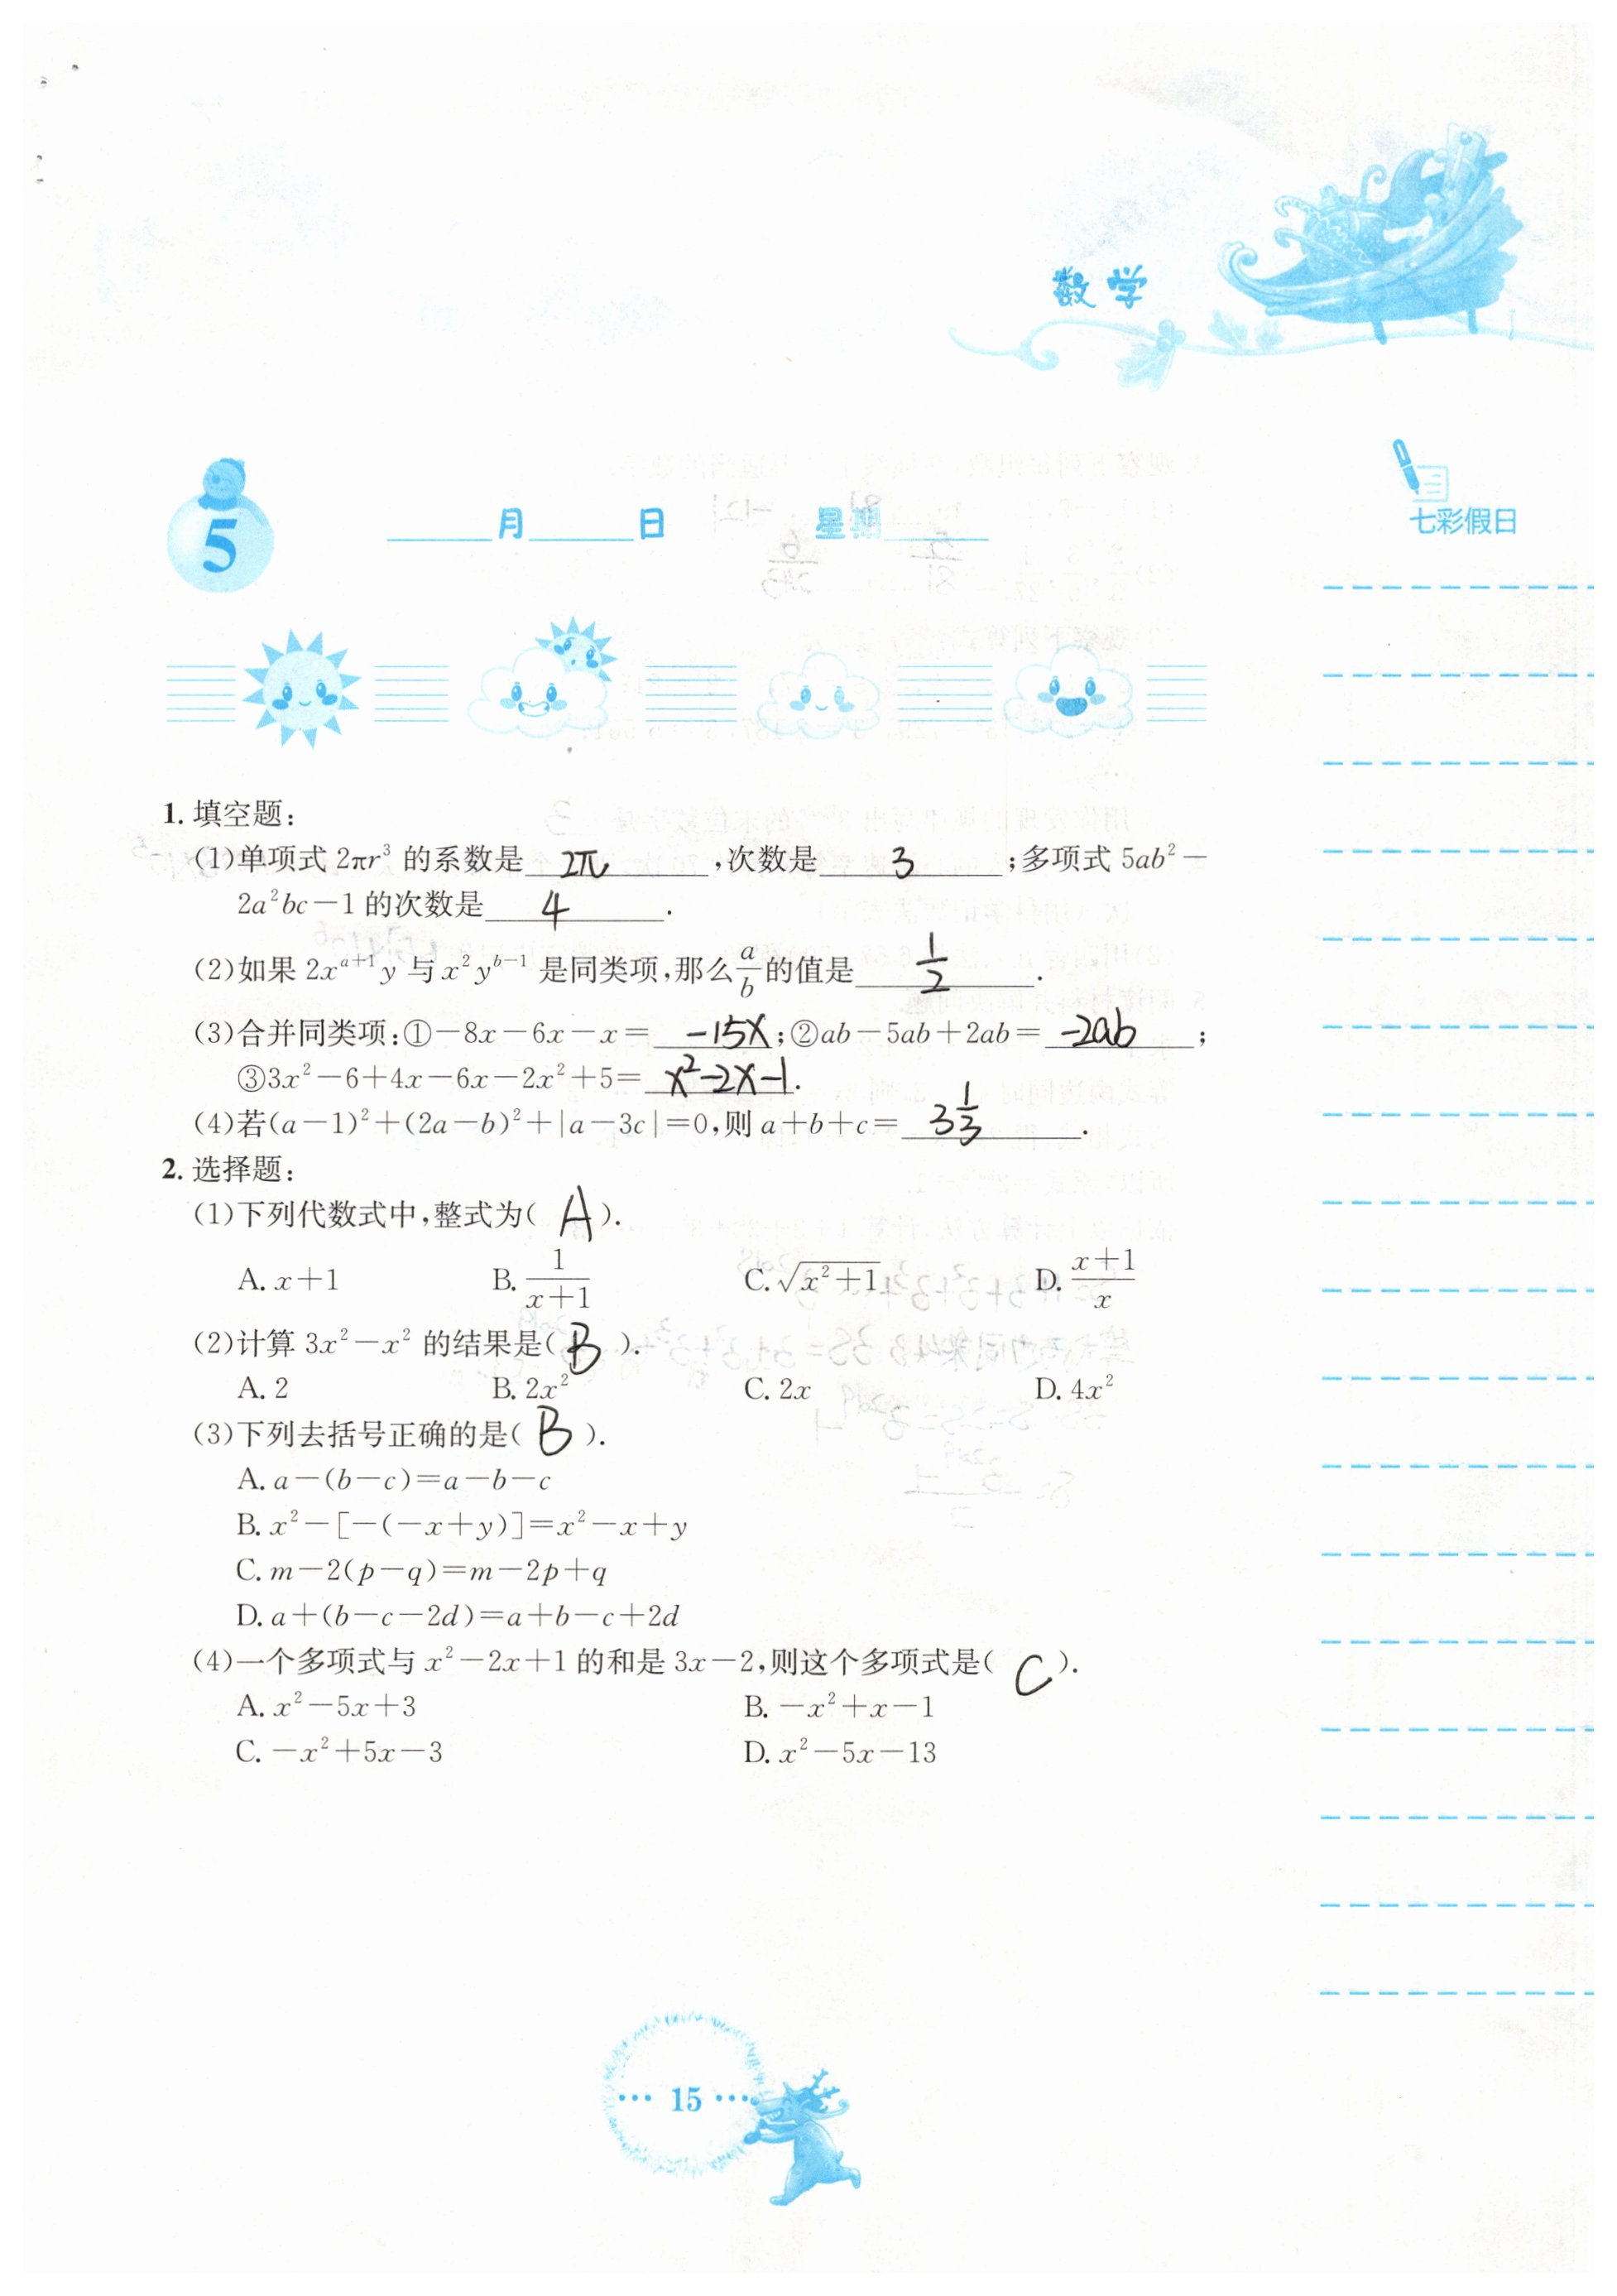 数学
5
____月____日 星期____
七彩假日
1. 填空题:
(1)单项式 2πr³ 的系数是 2π ,次数是 3 ;多项式 5ab²－
2a²bc－1 的次数是 4 .
(2)如果 2xᵃ⁺¹y 与 x²yᵇ⁻¹ 是同类项,那么 a/b 的值是 1/2 .
(3)合并同类项:①－8x－6x－x＝ -15x ;②ab－5ab＋2ab＝ -2ab ;
③3x²－6＋4x－6x－2x²＋5＝ x²-2x-1 .
(4)若(a－1)²＋(2a－b)²＋|a－3c|＝0,则 a＋b＋c＝ 3 1/3 .
2. 选择题:
(1)下列代数式中,整式为( A ).
A. x＋1 B. 1/(x＋1) C. √(x²＋1) D. (x＋1)/x
(2)计算 3x²－x² 的结果是( B ).
A. 2 B. 2x² C. 2x D. 4x²
(3)下列去括号正确的是( B ).
A. a－(b－c)＝a－b－c
B. x²－[－(－x＋y)]＝x²－x＋y
C. m－2(p－q)＝m－2p＋q
D. a＋(b－c－2d)＝a＋b－c＋2d
(4)一个多项式与 x²－2x＋1 的和是 3x－2,则这个多项式是( C ).
A. x²－5x＋3 B. －x²＋x－1
C. －x²＋5x－3 D. x²－5x－13
··· 15 ···